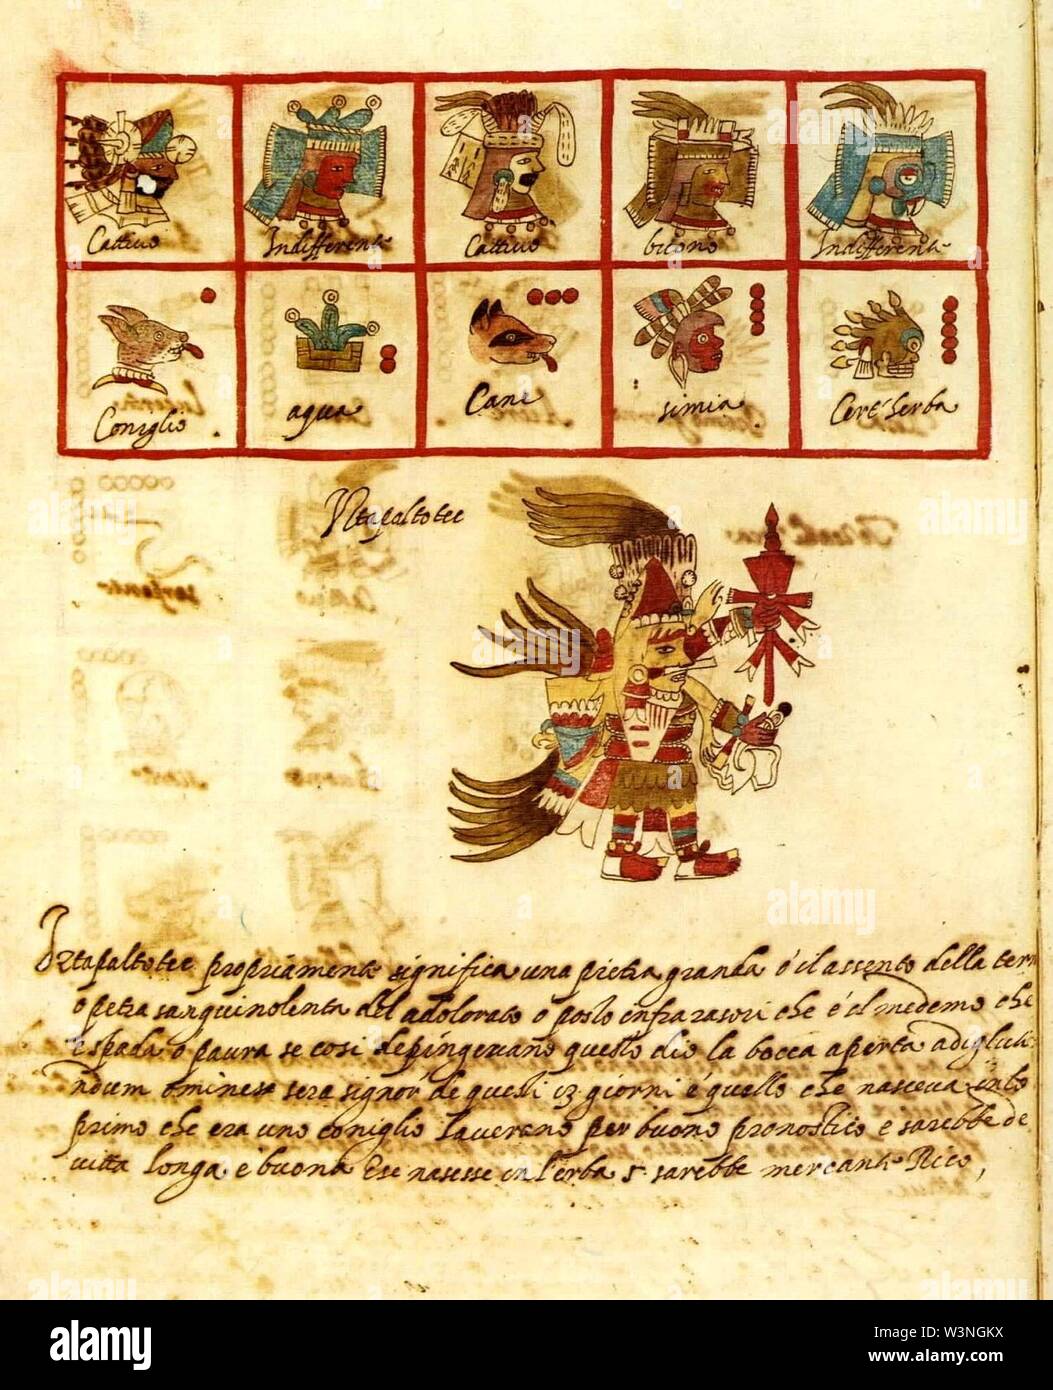 Cattiuo Indifferente Cattiuo buono Indifferente
Coniglio agua Cane simia Cert' herba
Yztapaltotec
Yztapaltotec propriamente significa una pietra granda o il assento della terra
o petra sanguinolenta del adolorato o posto infra rasori che é il medemo che
spada o paura se cosi depingeuano questo dio la bocca aperta a
sera signor de queli 13 giorni é quello che nasceua in lo
primo che era uno coniglio lauerano per buono pronostico e sarebbe de
uitta longa e buona E se nasesse in l'erba 5 sarebbe mercante Rico,
alamy
Image ID: W3NGKX
www.alamy.com